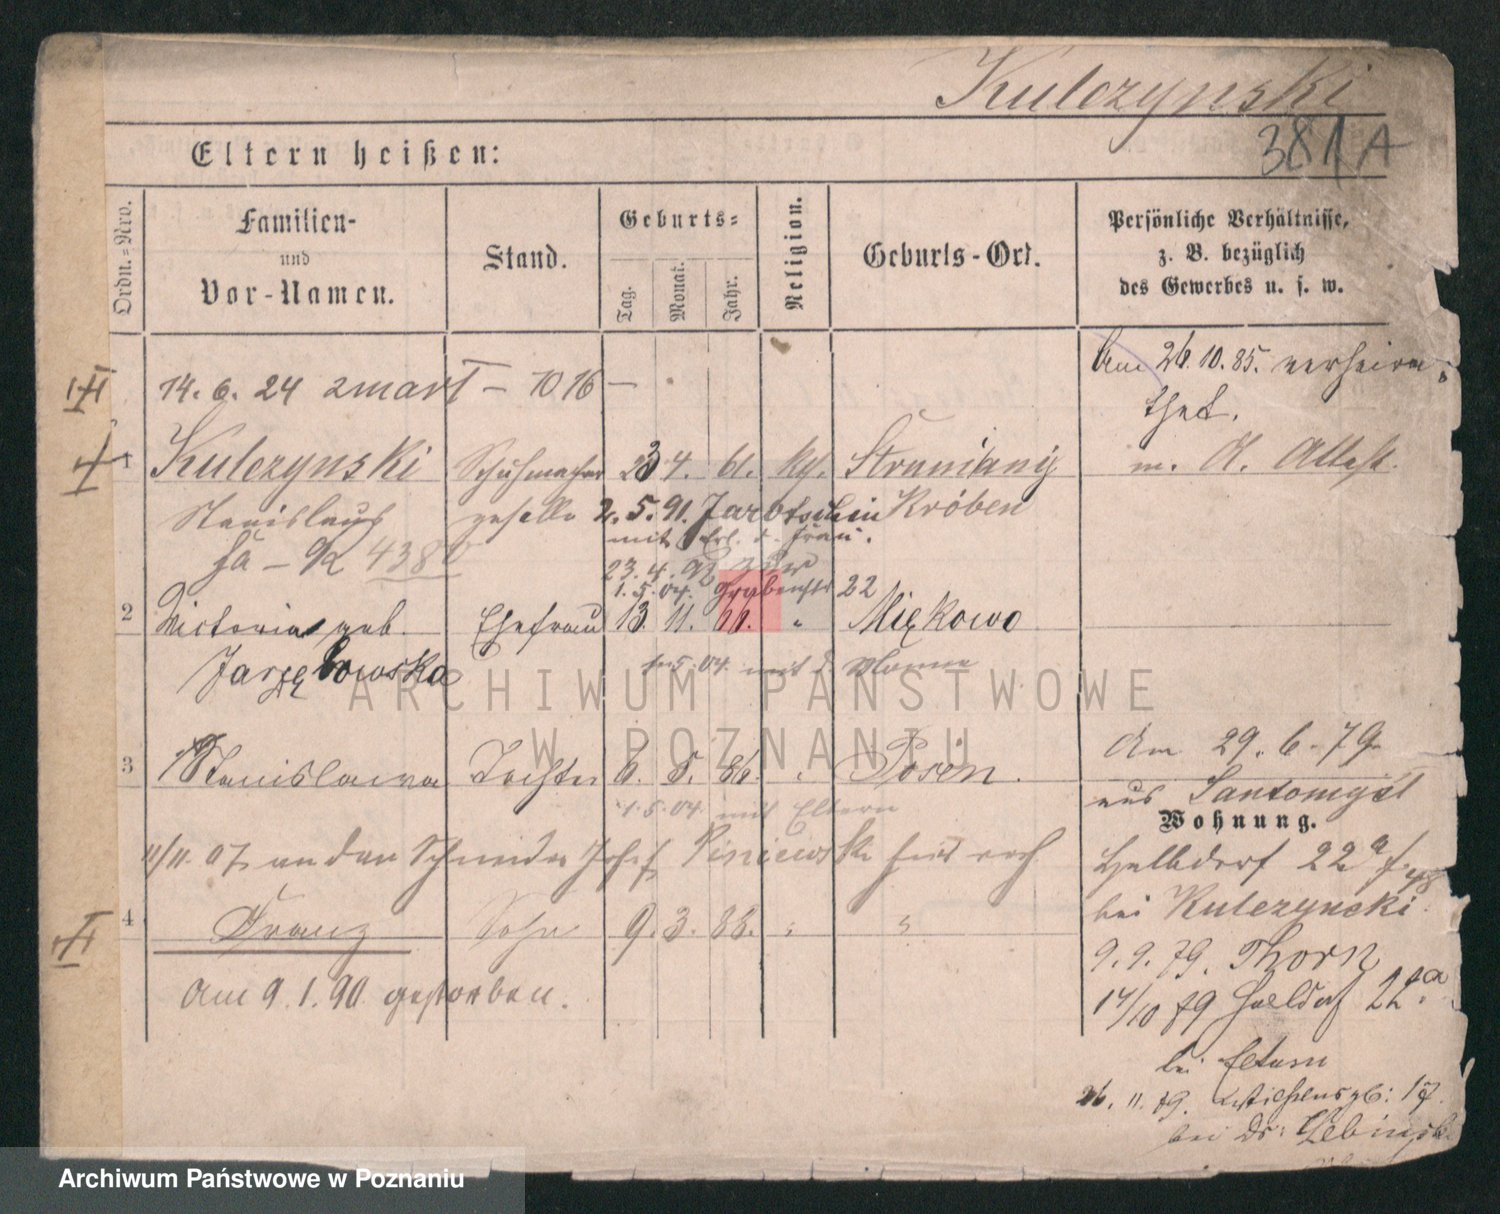 Kulczynski
381A
Eltern heißen:
Ordn.=Nro.
Familien-
und
Vor-Namen.
Stand.
Geburts=
Tag.
Monat.
Jahr.
Religion.
Geburts-Ort.
Persönliche Verhältnisse,
z. B. bezüglich
des Gewerbes u. s. w.
Am 26.10.85. verheira
thet.
14. 6. 24 zmarł – 1016 –
1 Kulczynski Schuhmacher 23 4. 61. kg.
m. A. Attest.
Stanislaus geselle 2. 5. 91. Jarotschin Kröben
mit Frau.
23. 4. 92
1. 5. 04. Grabenstr 22
2 Victoria geb. Ehefrau 13 11. " Miękowo
1.5.04. mit d. Manne
3 Stanislawa Tochter 6. 5. 86. " Posen.
1.5.04 mit Eltern
Am 29. 6. 79
aus Santomysl
Wohnung.
11/11. 07 an den Schneider Josef
Halbdorf 22a
bei Kulczynski
4 Franz Sohn 9. 3. 88. " "
Am 9. 1. 90 gestorben.
9. 9. 79. Thorn
14/10 79 Halbdorf 22a
bei Eltern
26. 11. 79.
bei
ARCHIWUM PAŃSTWOWE
W POZNANIU
Archiwum Państwowe w Poznaniu